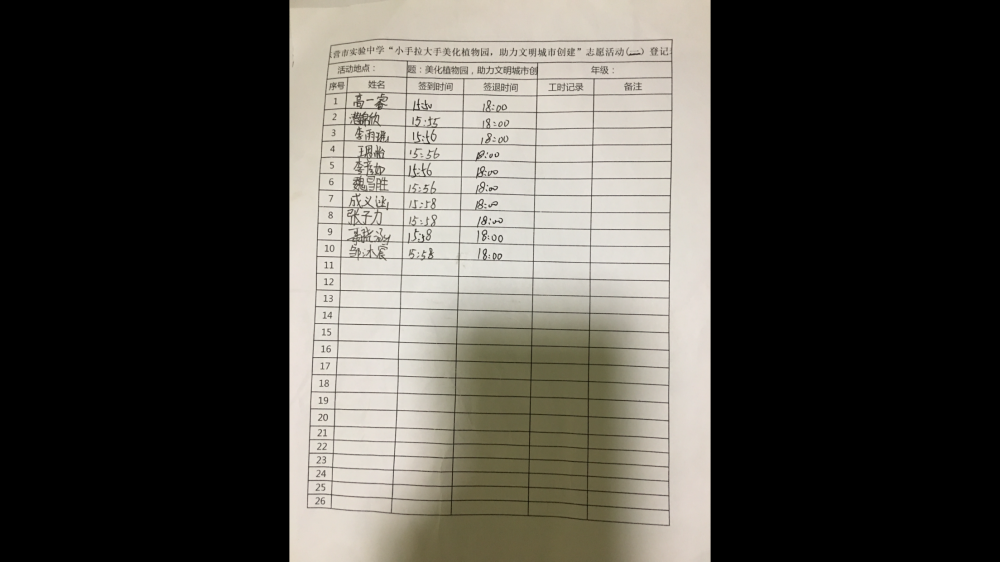 营市实验中学“小手拉大手美化植物园，助力文明城市创建”志愿活动(二）登记
活动地点： 题：美化植物园，助力文明城市创 年级：
序号 姓名 签到时间 签退时间 工时记录 备注
1 高一睿 15:50 18:00
2 欣 15:55 18:00
3 李雨琨 15:56 18:00
4 王 15:56 18:00
5 李 15:56 18:00
6 魏昌胜 15:56 18:00
7 成义涵 15:58 18:00
8 张子力 15:58 18:00
9 15:58 18:00
10 邹沐宸 5:58 18:00
11
12
13
14
15
16
17
18
19
20
21
22
23
24
25
26